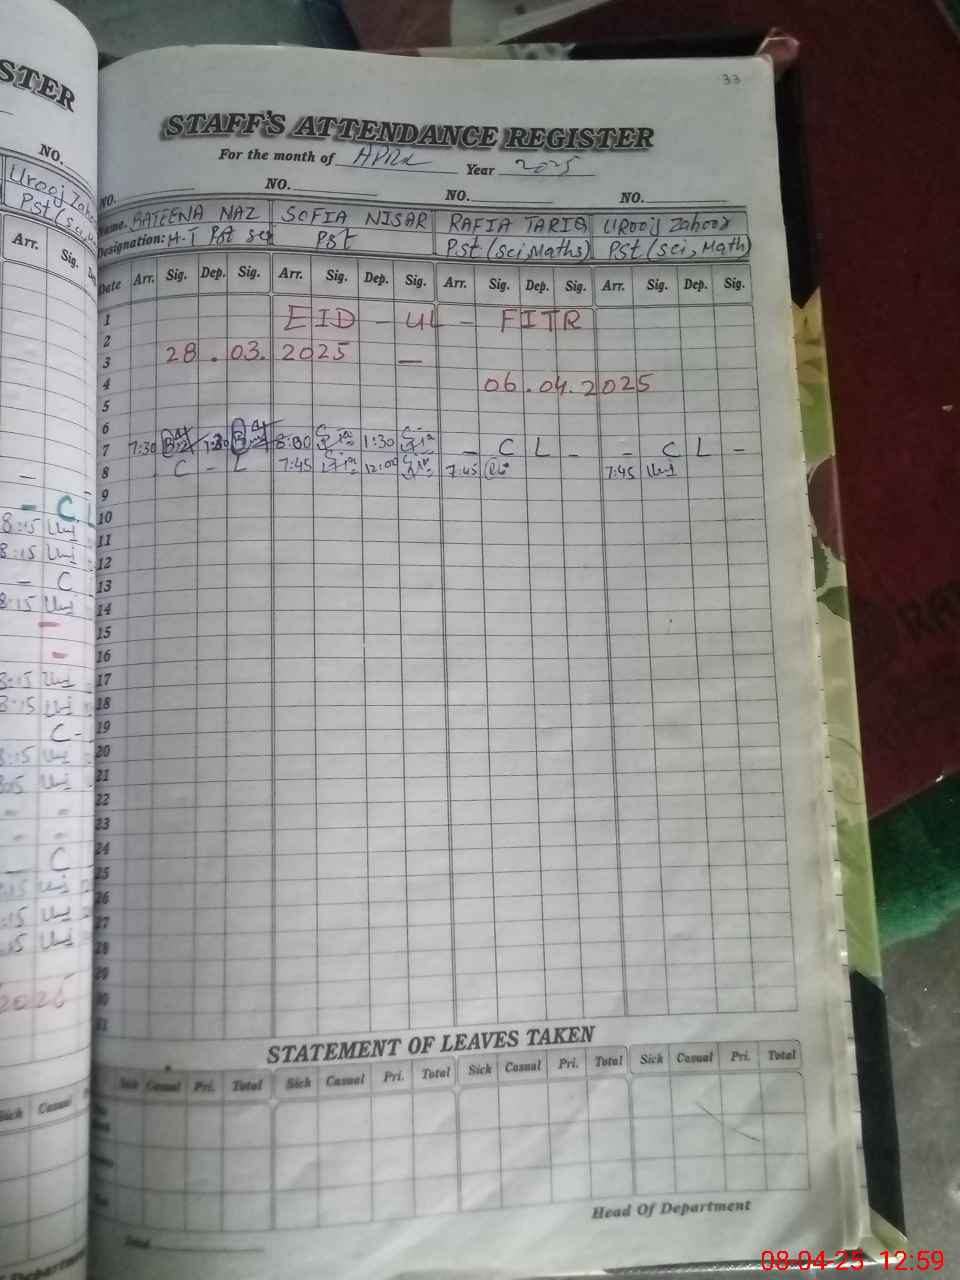 33
STER
STAFF'S ATTENDANCE REGISTER
For the month of APRIL Year 2025
NO.
NO. NO. NO. NO.
Name. BATEENA NAZ SOFIA NISAR RAFIA TARIQ Urooj Zahoor
Designation: H.T Pst sci Pst Pst (sci, Maths) Pst (sci, Math)
Urooj
Pst (sci
Arr. Sig. Dep.
Date Arr. Sig. Dep. Sig. Arr. Sig. Dep. Sig. Arr. Sig. Dep. Sig. Arr. Sig. Dep. Sig.
1 EID - UL - FITR
2
3 28 . 03. 2025 —
4 06 . 04. 2025
5
6
7 7:30 1:30 8:00 1:30 - C L - - C L -
8 C - L 7:45 12:00 7:45 7:45
9
10
11
12
13
14
15
16
17
18
19
20
21
22
23
24
25
26
27
28
29
30
31
- C
8:15
8:15
- C
8:15
8:15
8:15
C -
8:15
8:15
C
8:15
:15
.15
2025
STATEMENT OF LEAVES TAKEN
Sick Casual Pri. Total Sick Casual Pri. Total Sick Casual Pri. Total Sick Casual Pri. Total
Sick Casual
Head Of Department
08-04-25 12:59